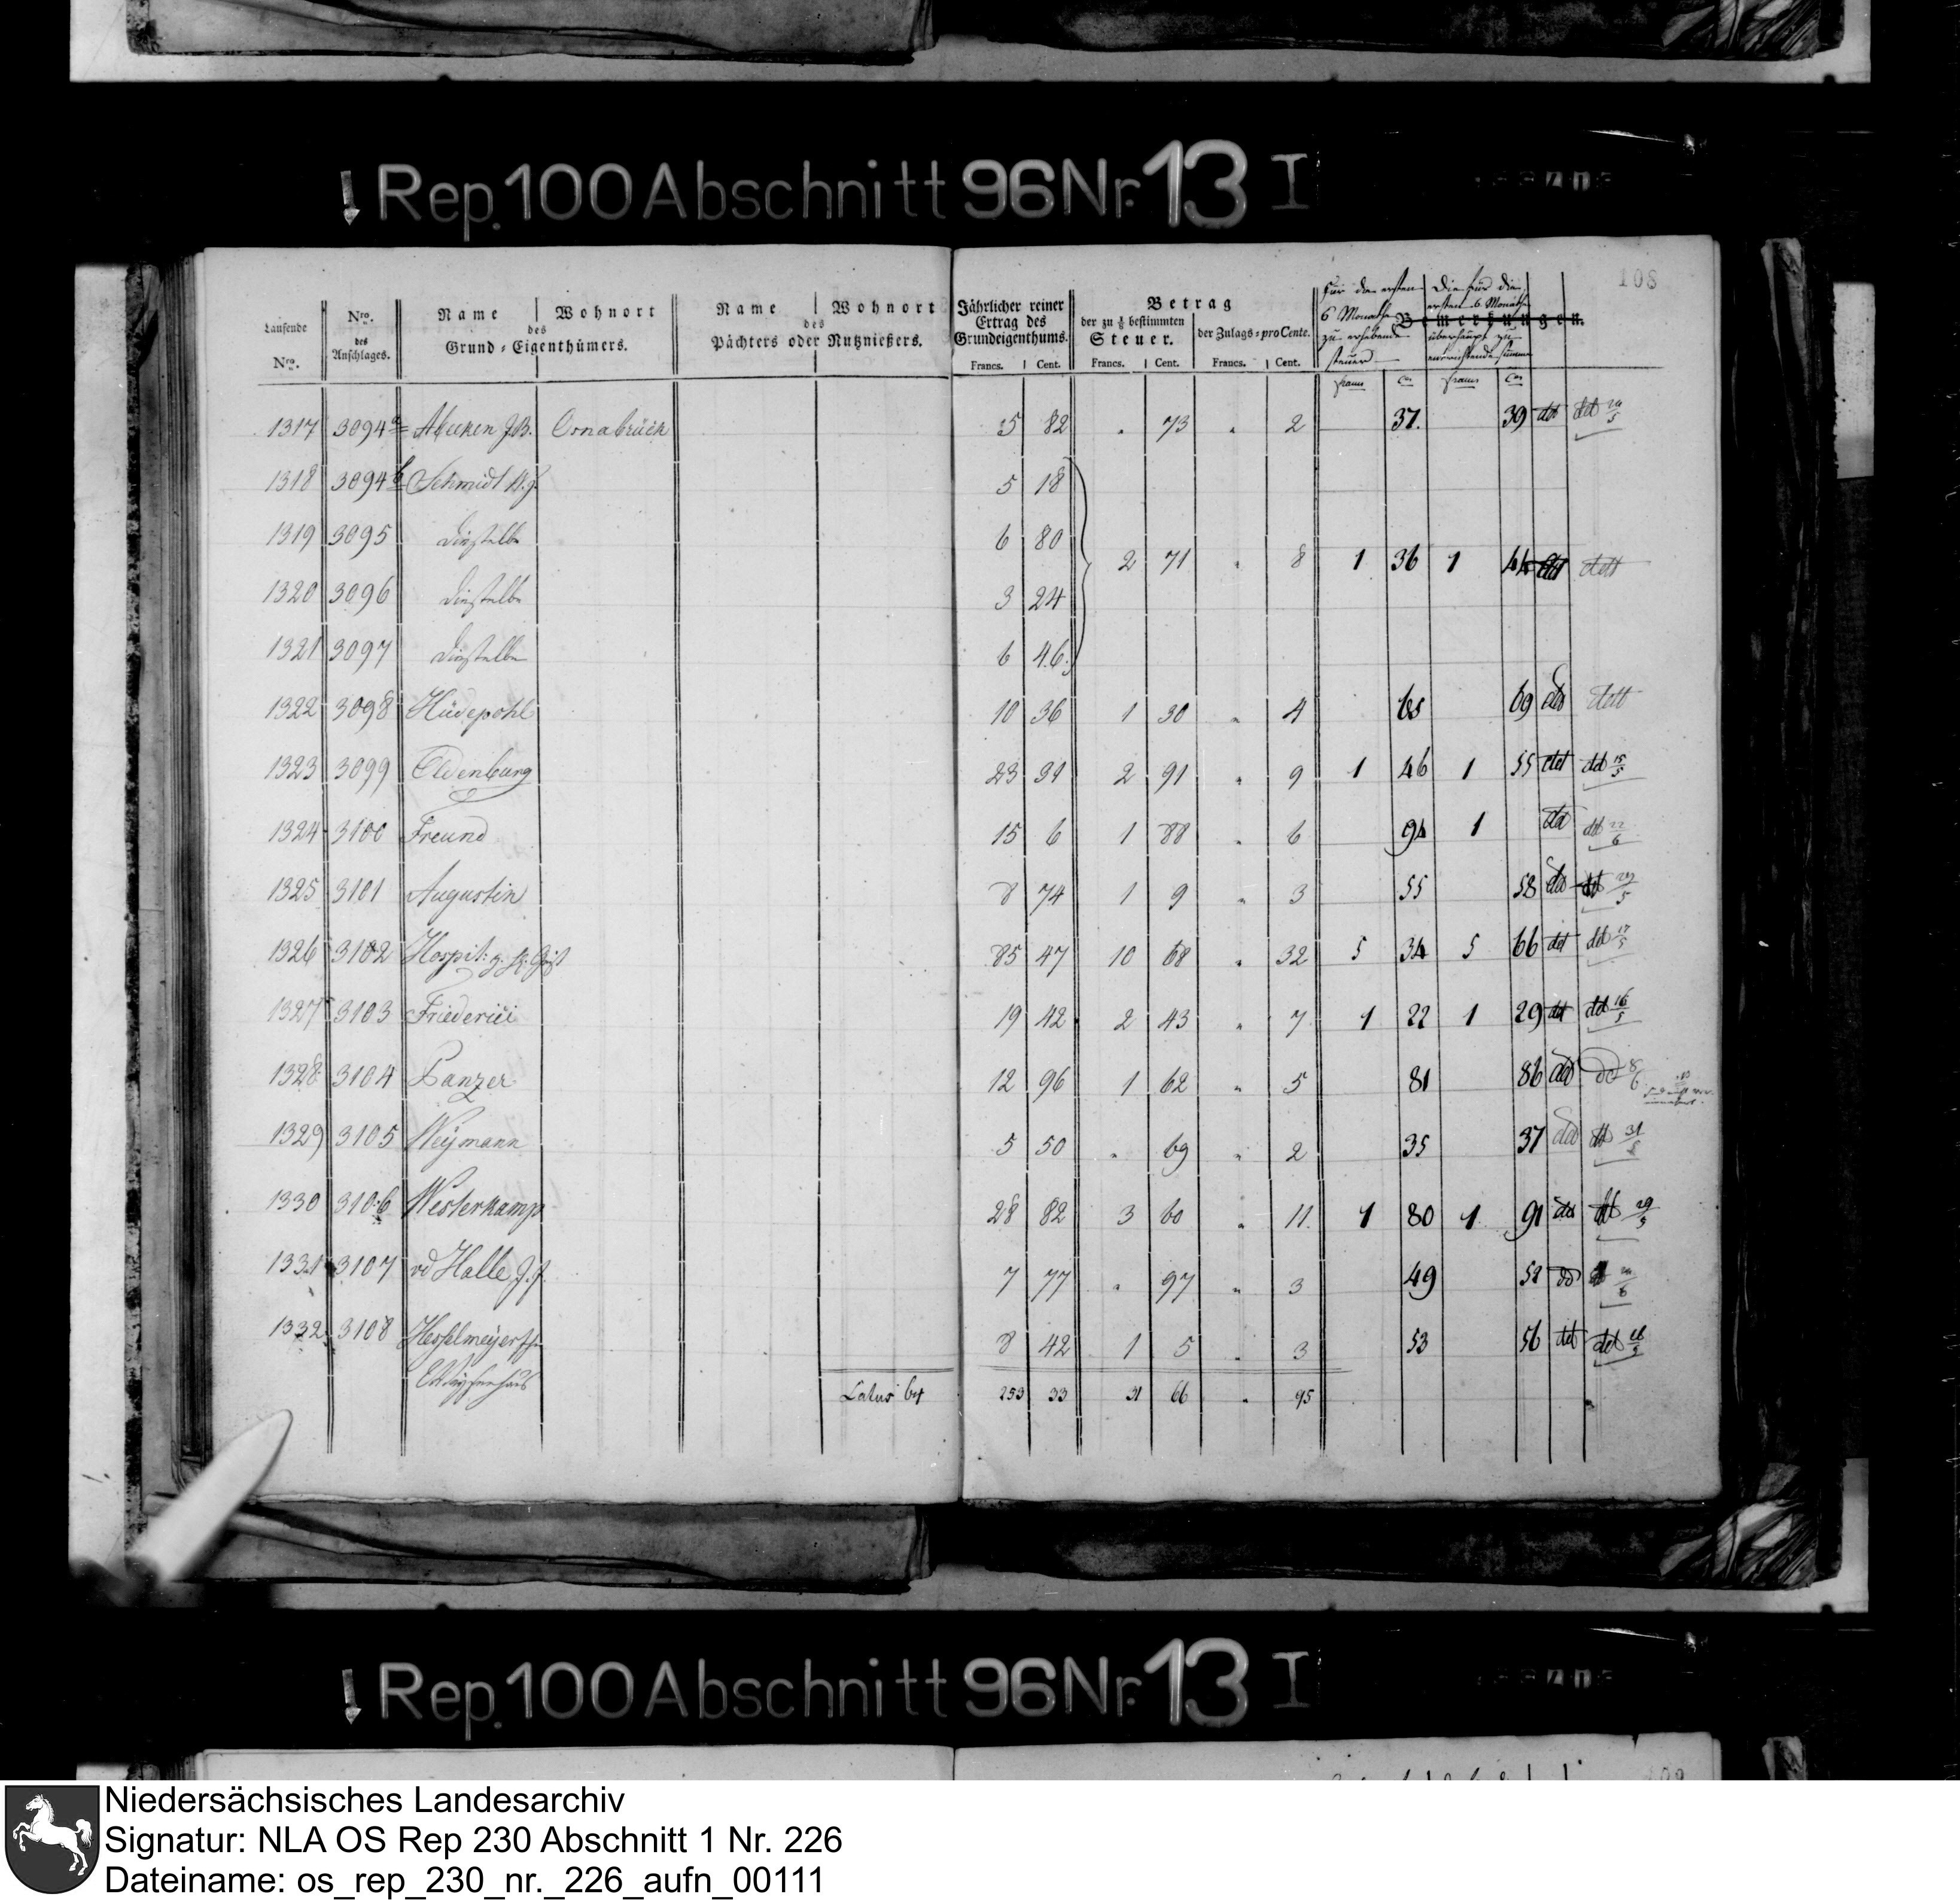 Rep. 100 Abschnitt 96 Nr. 13 I
108
Laufende Nro.
Nro. des Anschlages.
Name | Wohnort
des
Grund-Eigenthümers.
Name | Wohnort
des
Pächters oder Nutznießers.
Jährlicher reiner Ertrag des Grundeigenthums.
Francs. | Cent.
Betrag
der zu ⅛ bestimmten Steuer.
Francs. | Cent.
der Zulags-proCente.
Francs. | Cent.
Für die ersten 6 Monathe zu erhebende Steuer
Die für die ersten 6 Monathe überhaupt zu entrichtende Summe
Bemerkungen.
francs | Cen | francs | Cen
1317 3094a Abeken J.B. Osnabrück 5 82 " 73 " 2 37. 39 dd dd
1318 3094b Schmidt 5 18
1319 3095 Dieselbe 6 80
2 71 " 8 1 36 1 44
1320 3096 Dieselbe 3 24
1321 3097 Dieselbe 6 46
1322 3098 Hüdepohl 10 36 1 30 " 4 65 69
1323 3099 Oldenburg 23 31 2 91 " 9 1 46 1 55 15/5
1324 3100 Freund 15 6 1 88 " 6 94 1 22/6
1325 3101 Augustin 8 74 1 9 " 3 55 58 29/5
1326 3102 Hospit: z. H. Geist 85 47 10 68 " 32 5 34 5 66 17/5
1327 3103 Friederici 19 42 2 43 " 7 1 22 1 29 16/5
1328 3104 Panzer 12 96 1 62 " 5 81 86 8/6
1329 3105 Weymann 5 50 " 69 " 2 35 37 31/5
1330 3106 Westerkamp 28 82 3 60 " 11 1 80 1 91 29/5
1331 3107 vd Halle J.J. 7 77 " 97 " 3 49 52
1332 3108 Hesselmeyersche 8 42 1 5 " 3 53 56
Latus 253 33 31 66 " 95
Rep. 100 Abschnitt 96 Nr. 13 I
Niedersächsisches Landesarchiv
Signatur: NLA OS Rep 230 Abschnitt 1 Nr. 226
Dateiname: os_rep_230_nr._226_aufn_00111